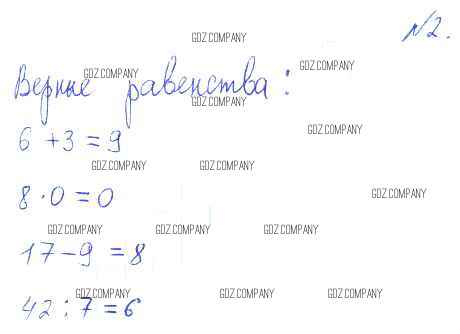 №2.
Верные равенства:
6 + 3 = 9
8 · 0 = 0
17 - 9 = 8
42 : 7 = 6
GDZ.COMPANY
GDZ.COMPANY
GDZ.COMPANY
GDZ.COMPANY
GDZ.COMPANY
GDZ.COMPANY
GDZ.COMPANY
GDZ.COMPANY
GDZ.COMPANY
GDZ.COMPANY
GDZ.COMPANY
GDZ.COMPANY
GDZ.COMPANY
GDZ.COMPANY